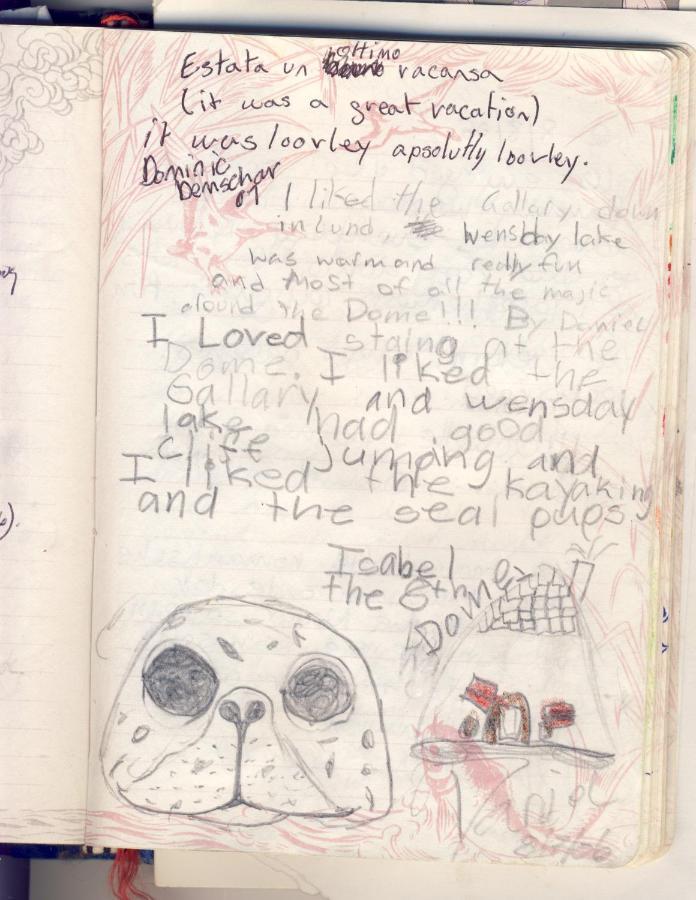 Estata un ottimo vacansa
(it was a great vacation)
it was loovley apsolutly loovley.
Dominic
Demschar
I liked the Gallary down
in Lund, wensday lake
was warm and really fun
and most of all the magic
around the Dome!!! By Daniel
I Loved staing at the
Dome. I liked the
Gallary and wensday
lake had good
cliff jumping and
I liked the kayaking
and the seal pups.
Isabel
the 8th
Dome